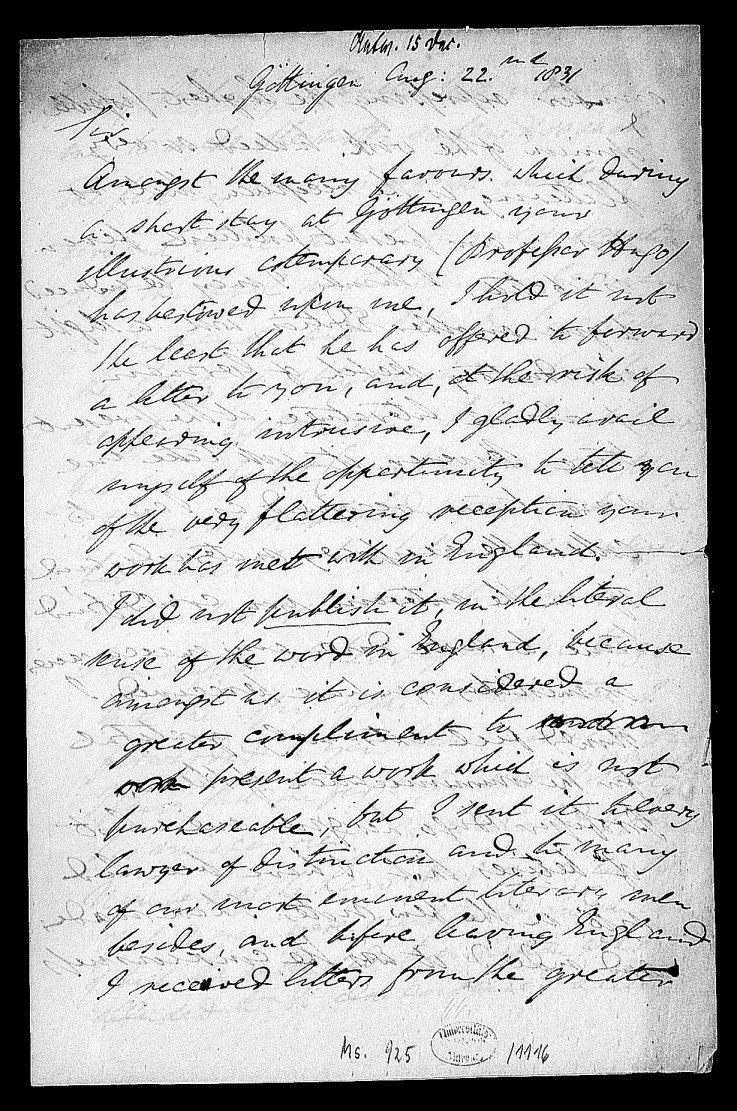 Antw. 15 Dec.
Göttingen Aug: 22.nd 1831
Sir
Amongst the many favours which during
a short stay at Göttingen your
illustrious cotemporary (Professor Hugo)
has bestowed upon me, I hold it not
the least that he has offered to forward
a letter to you, and, at the risk of
appearing intrusive, I gladly avail
myself of the opportunity to tell you
of the very flattering reception your
work has met with in England.
I did not publish it, in the literal
sense of the word in England, because
amongst us it is considered a
greater compliment to
present a work which is not
purchaseable, but I sent it to every
lawyer of distinction and to many
of our most eminent literary men
besides, and before leaving England
I received letters from the greater
Ms. 925 /1116